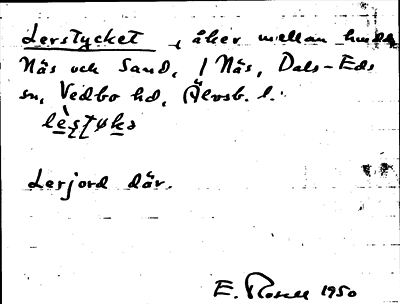 Lerstycket, åker mellan
Näs och Sand, / Näs, Dals-Eds
sn, Vedbo hd, Älvsb. l.
Lerjord där.
E. Rosell 1950